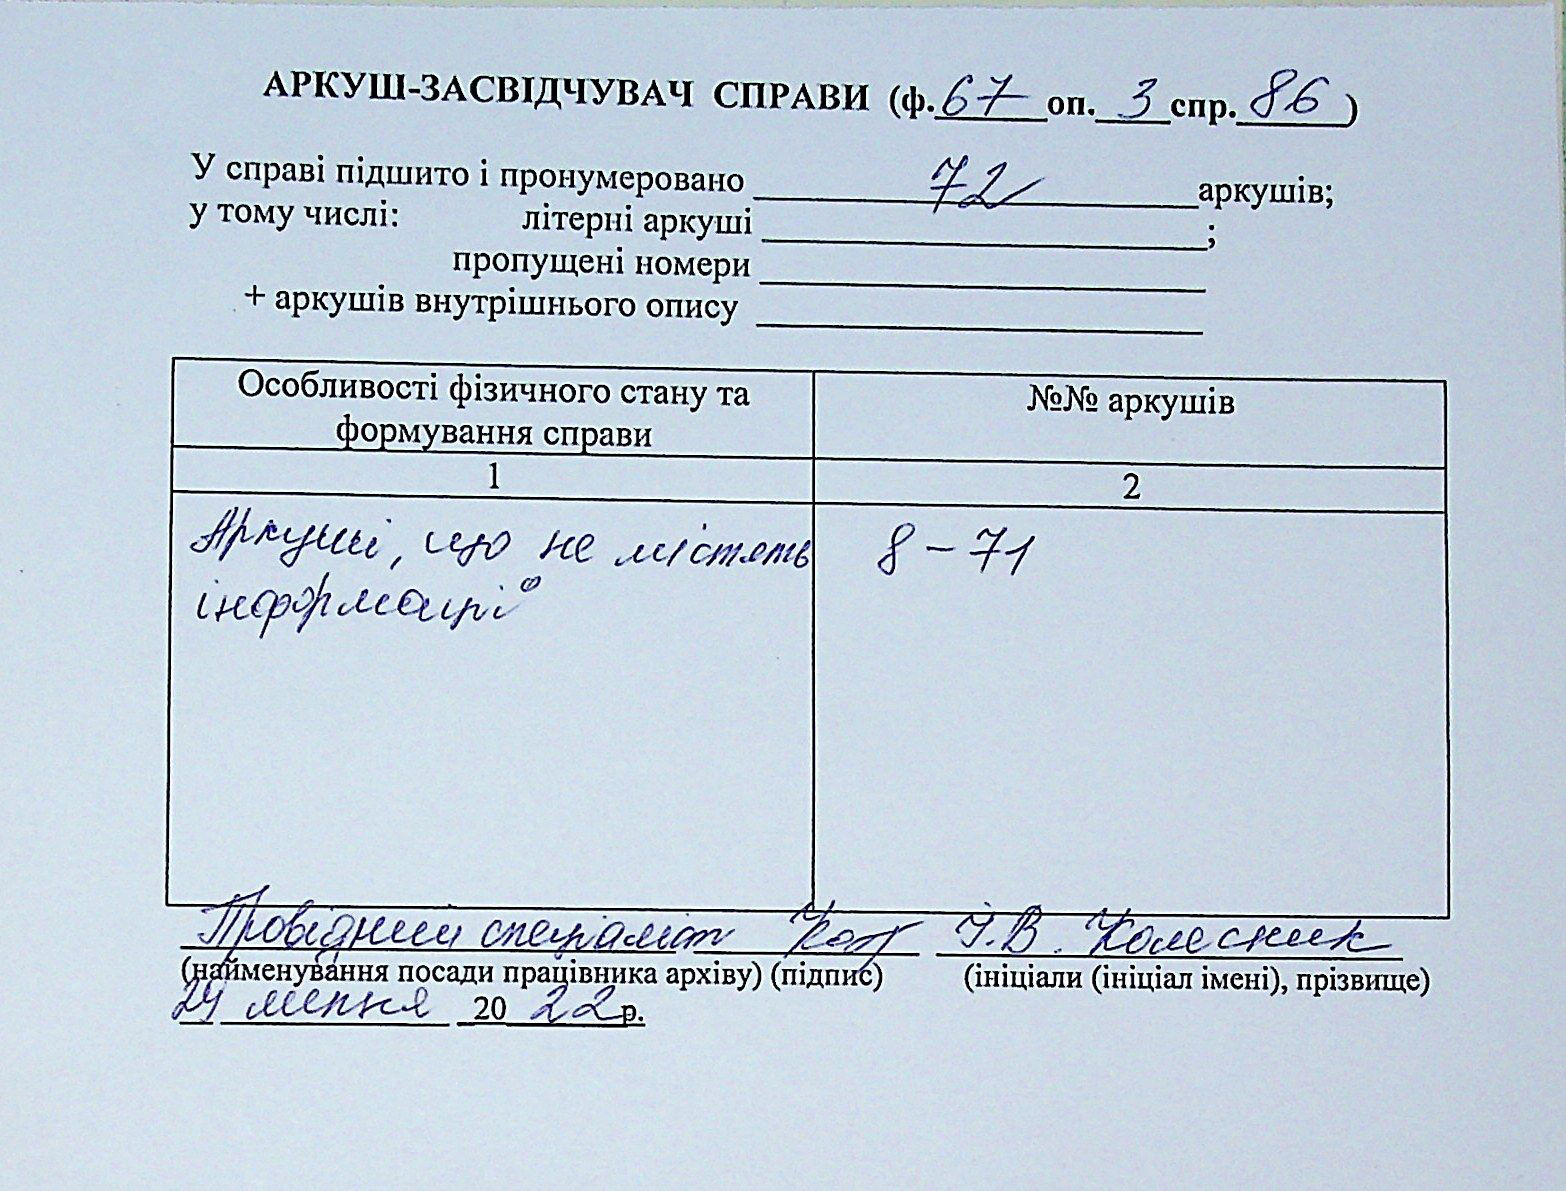 АРКУШ-ЗАСВІДЧУВАЧ СПРАВИ (ф. 67 оп. 3 спр. 86 )
У справі підшито і пронумеровано 72 аркушів;
у тому числі: літерні аркуші ;
пропущені номери
+ аркушів внутрішнього опису
Особливості фізичного стану та
формування справи
№№ аркушів
1 2
Аркуші, що не містять 8 – 71
інформації
Провідний спеціаліст І.В. Колесник
(найменування посади працівника архіву) (підпис) (ініціали (ініціал імені), прізвище)
липня 20 22 р.